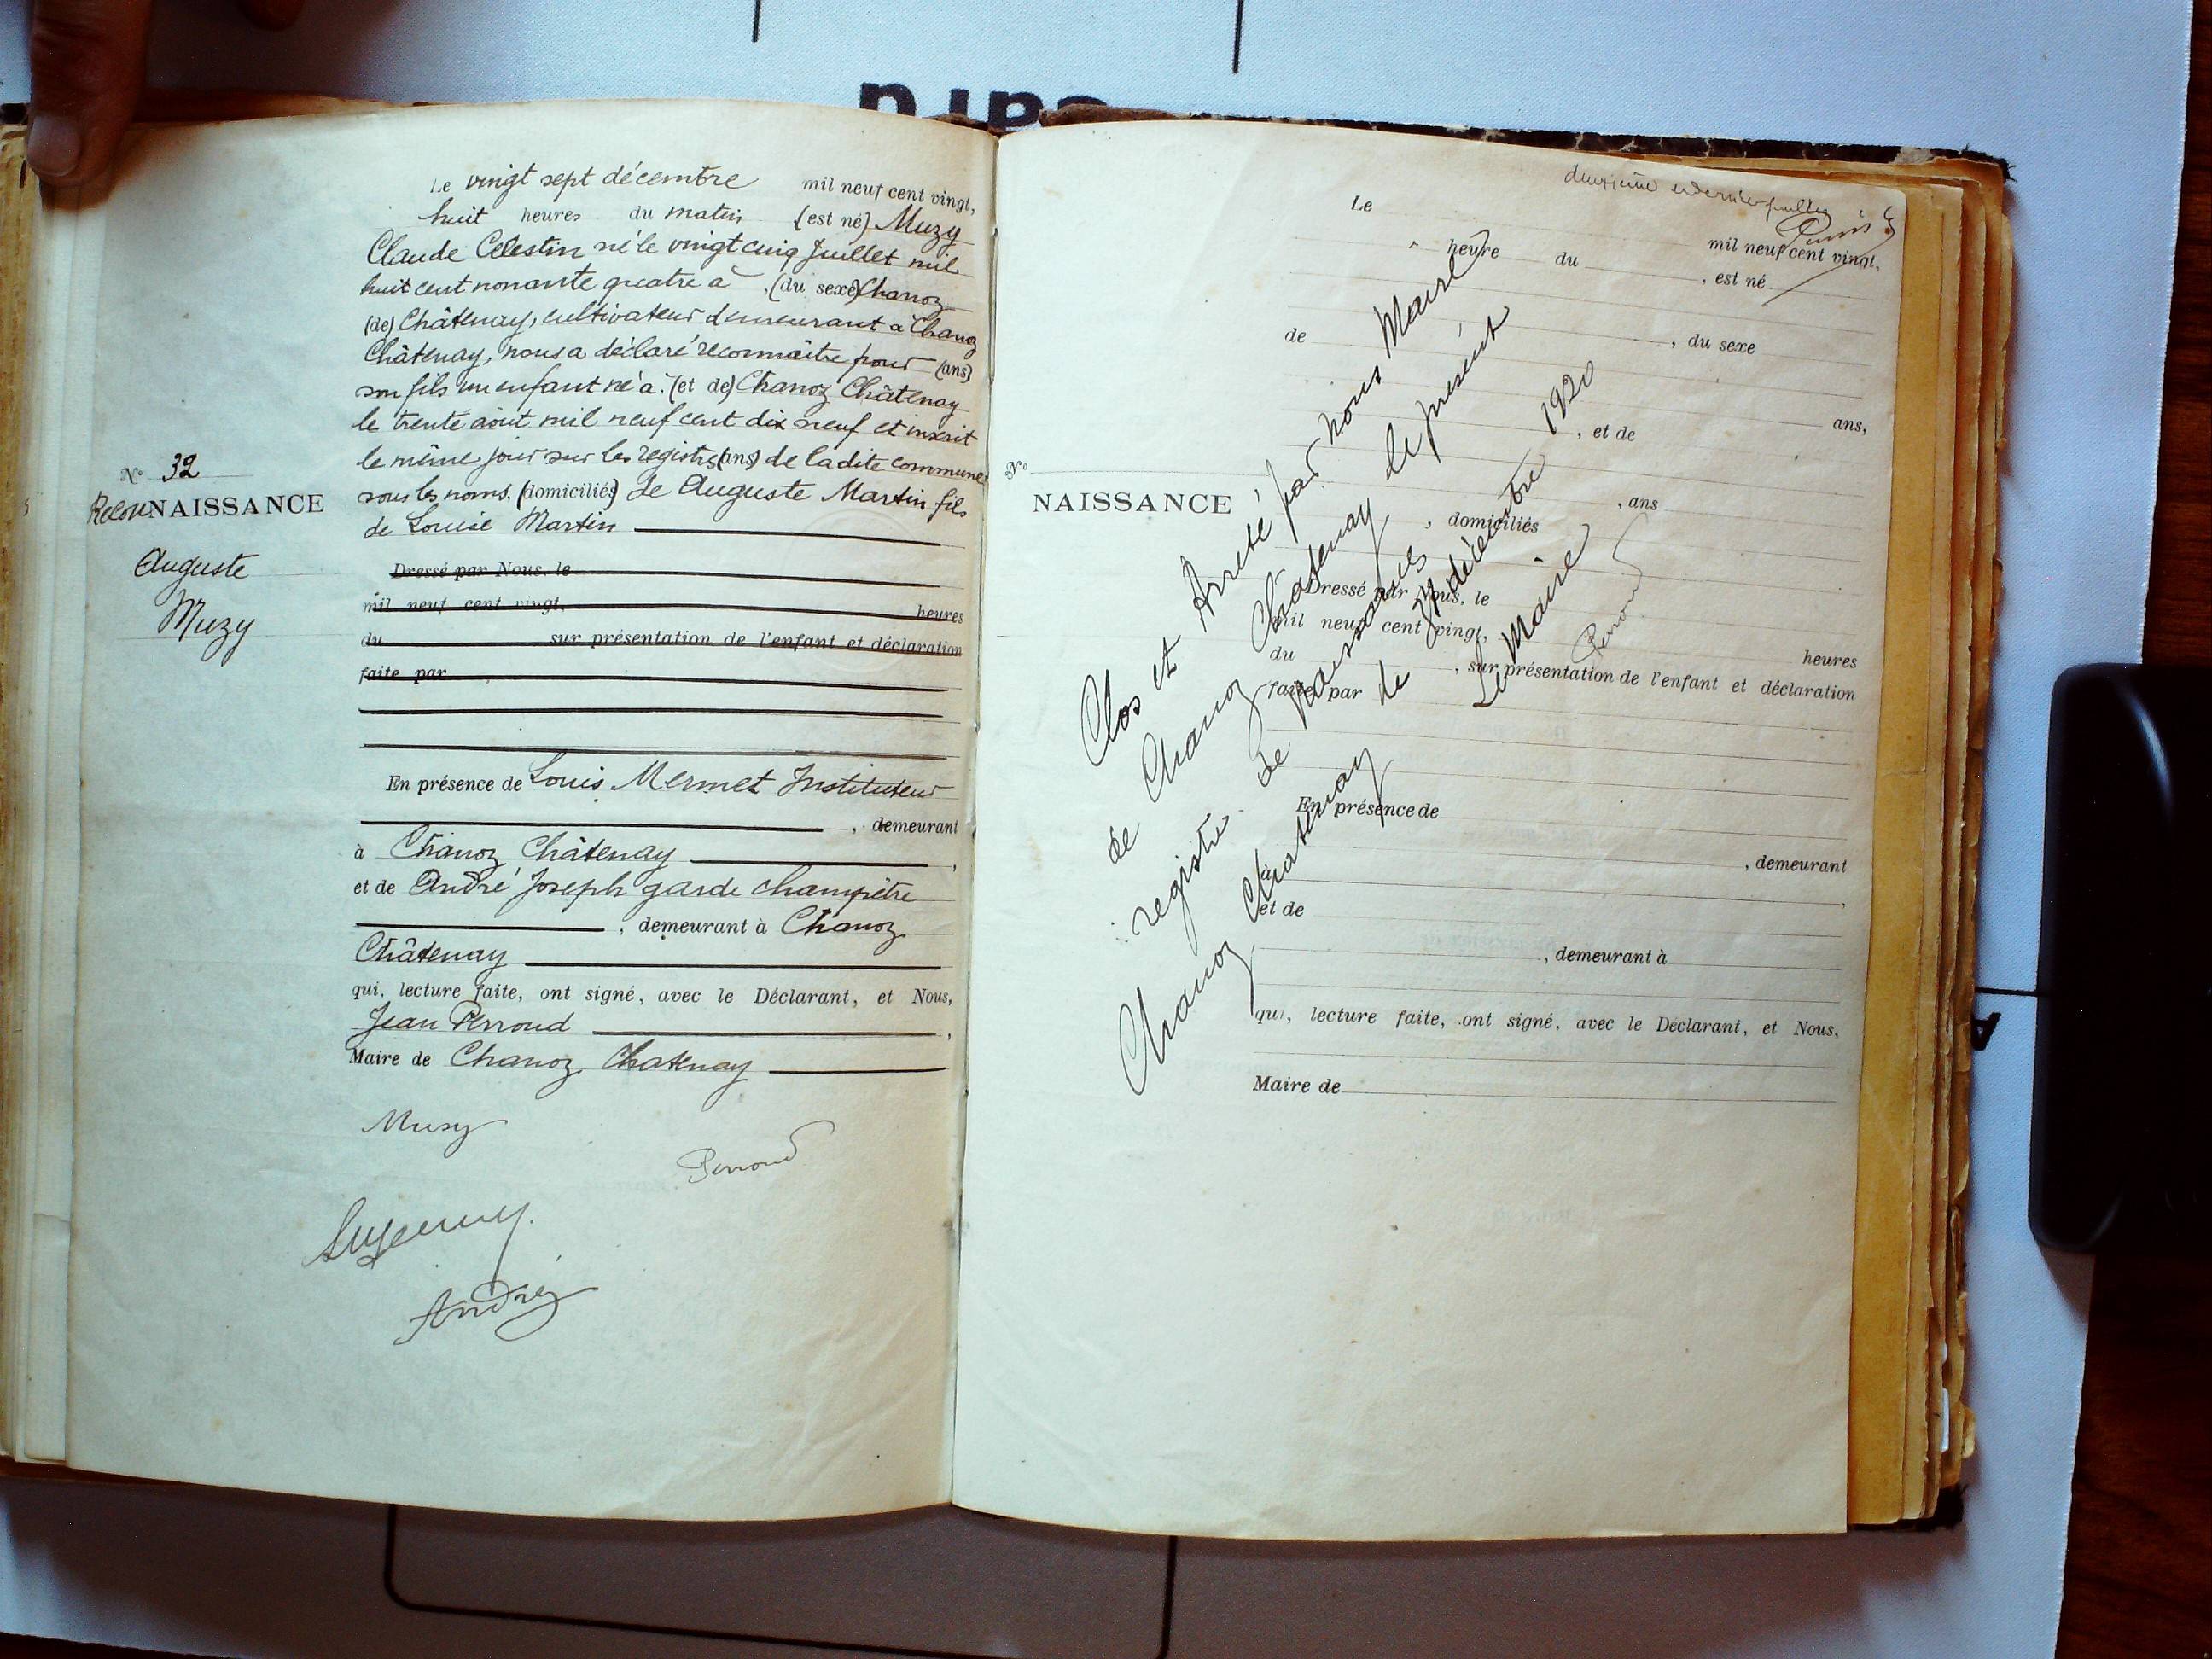 Le vingt sept décembre mil neuf cent vingt,
huit heures du matin (est né) Muzy
Claude Célestin né le vingt cinq Juillet mil
huit cent nonante quatre à , (du sexe) Chanoz
(de) Châtenay, cultivateur demeurant à Chanoz
Châtenay, nous a déclaré reconnaître pour (ans)
son fils un enfant né à (et de) Chanoz Châtenay
le trente août mil neuf cent dix neuf et inscrit
le même jour sur les registres (ans) de la dite commune
sous les noms (domiciliés) de Auguste Martin fils
de Louise Martin
N° 32
Recon NAISSANCE
Auguste
Muzy
Dressé par Nous, le
mil neuf cent vingt, heures
du sur présentation de l'enfant et déclaration
faite par
En présence de Louis Mermet Instituteur
, demeurant
à Chanoz Châtenay ,
et de André Joseph garde champêtre
, demeurant à Chanoz
Châtenay
qui, lecture faite, ont signé, avec le Déclarant, et Nous,
Jean Perroud ,
Maire de Chanoz Chatenay
Muzy
Perroud
André
deuxième et dernier feuillet
Le
mil neuf cent vingt,
heure du , est né
de , du sexe
ans,
, et de
N°
NAISSANCE
, ans
, domiciliés
Dressé par Nous, le
mil neuf cent vingt,
heures
du , sur présentation de l'enfant et déclaration
faite par
En présence de
, demeurant
à ,
et de
, demeurant à
qui, lecture faite, ont signé, avec le Déclarant, et Nous,
Maire de
Clos et Arrêté par nous Maire
de Chanoz Châtenay le présent
registre de Naissances
Chanoz Chatenay le 31 décembre 1920
Le Maire
Perroud